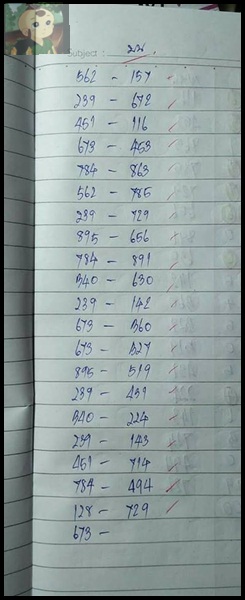 Subject : บน.
562 - 157
239 - 672
451 - 116
673 - 453
784 - 863
562 - 785
239 - 729
895 - 656
784 - 891
340 - 630
239 - 142
673 - 360
673 - 327
895 - 519
239 - 439
340 - 224
239 - 143
451 - 714
784 - 494
128 - 729
673 -